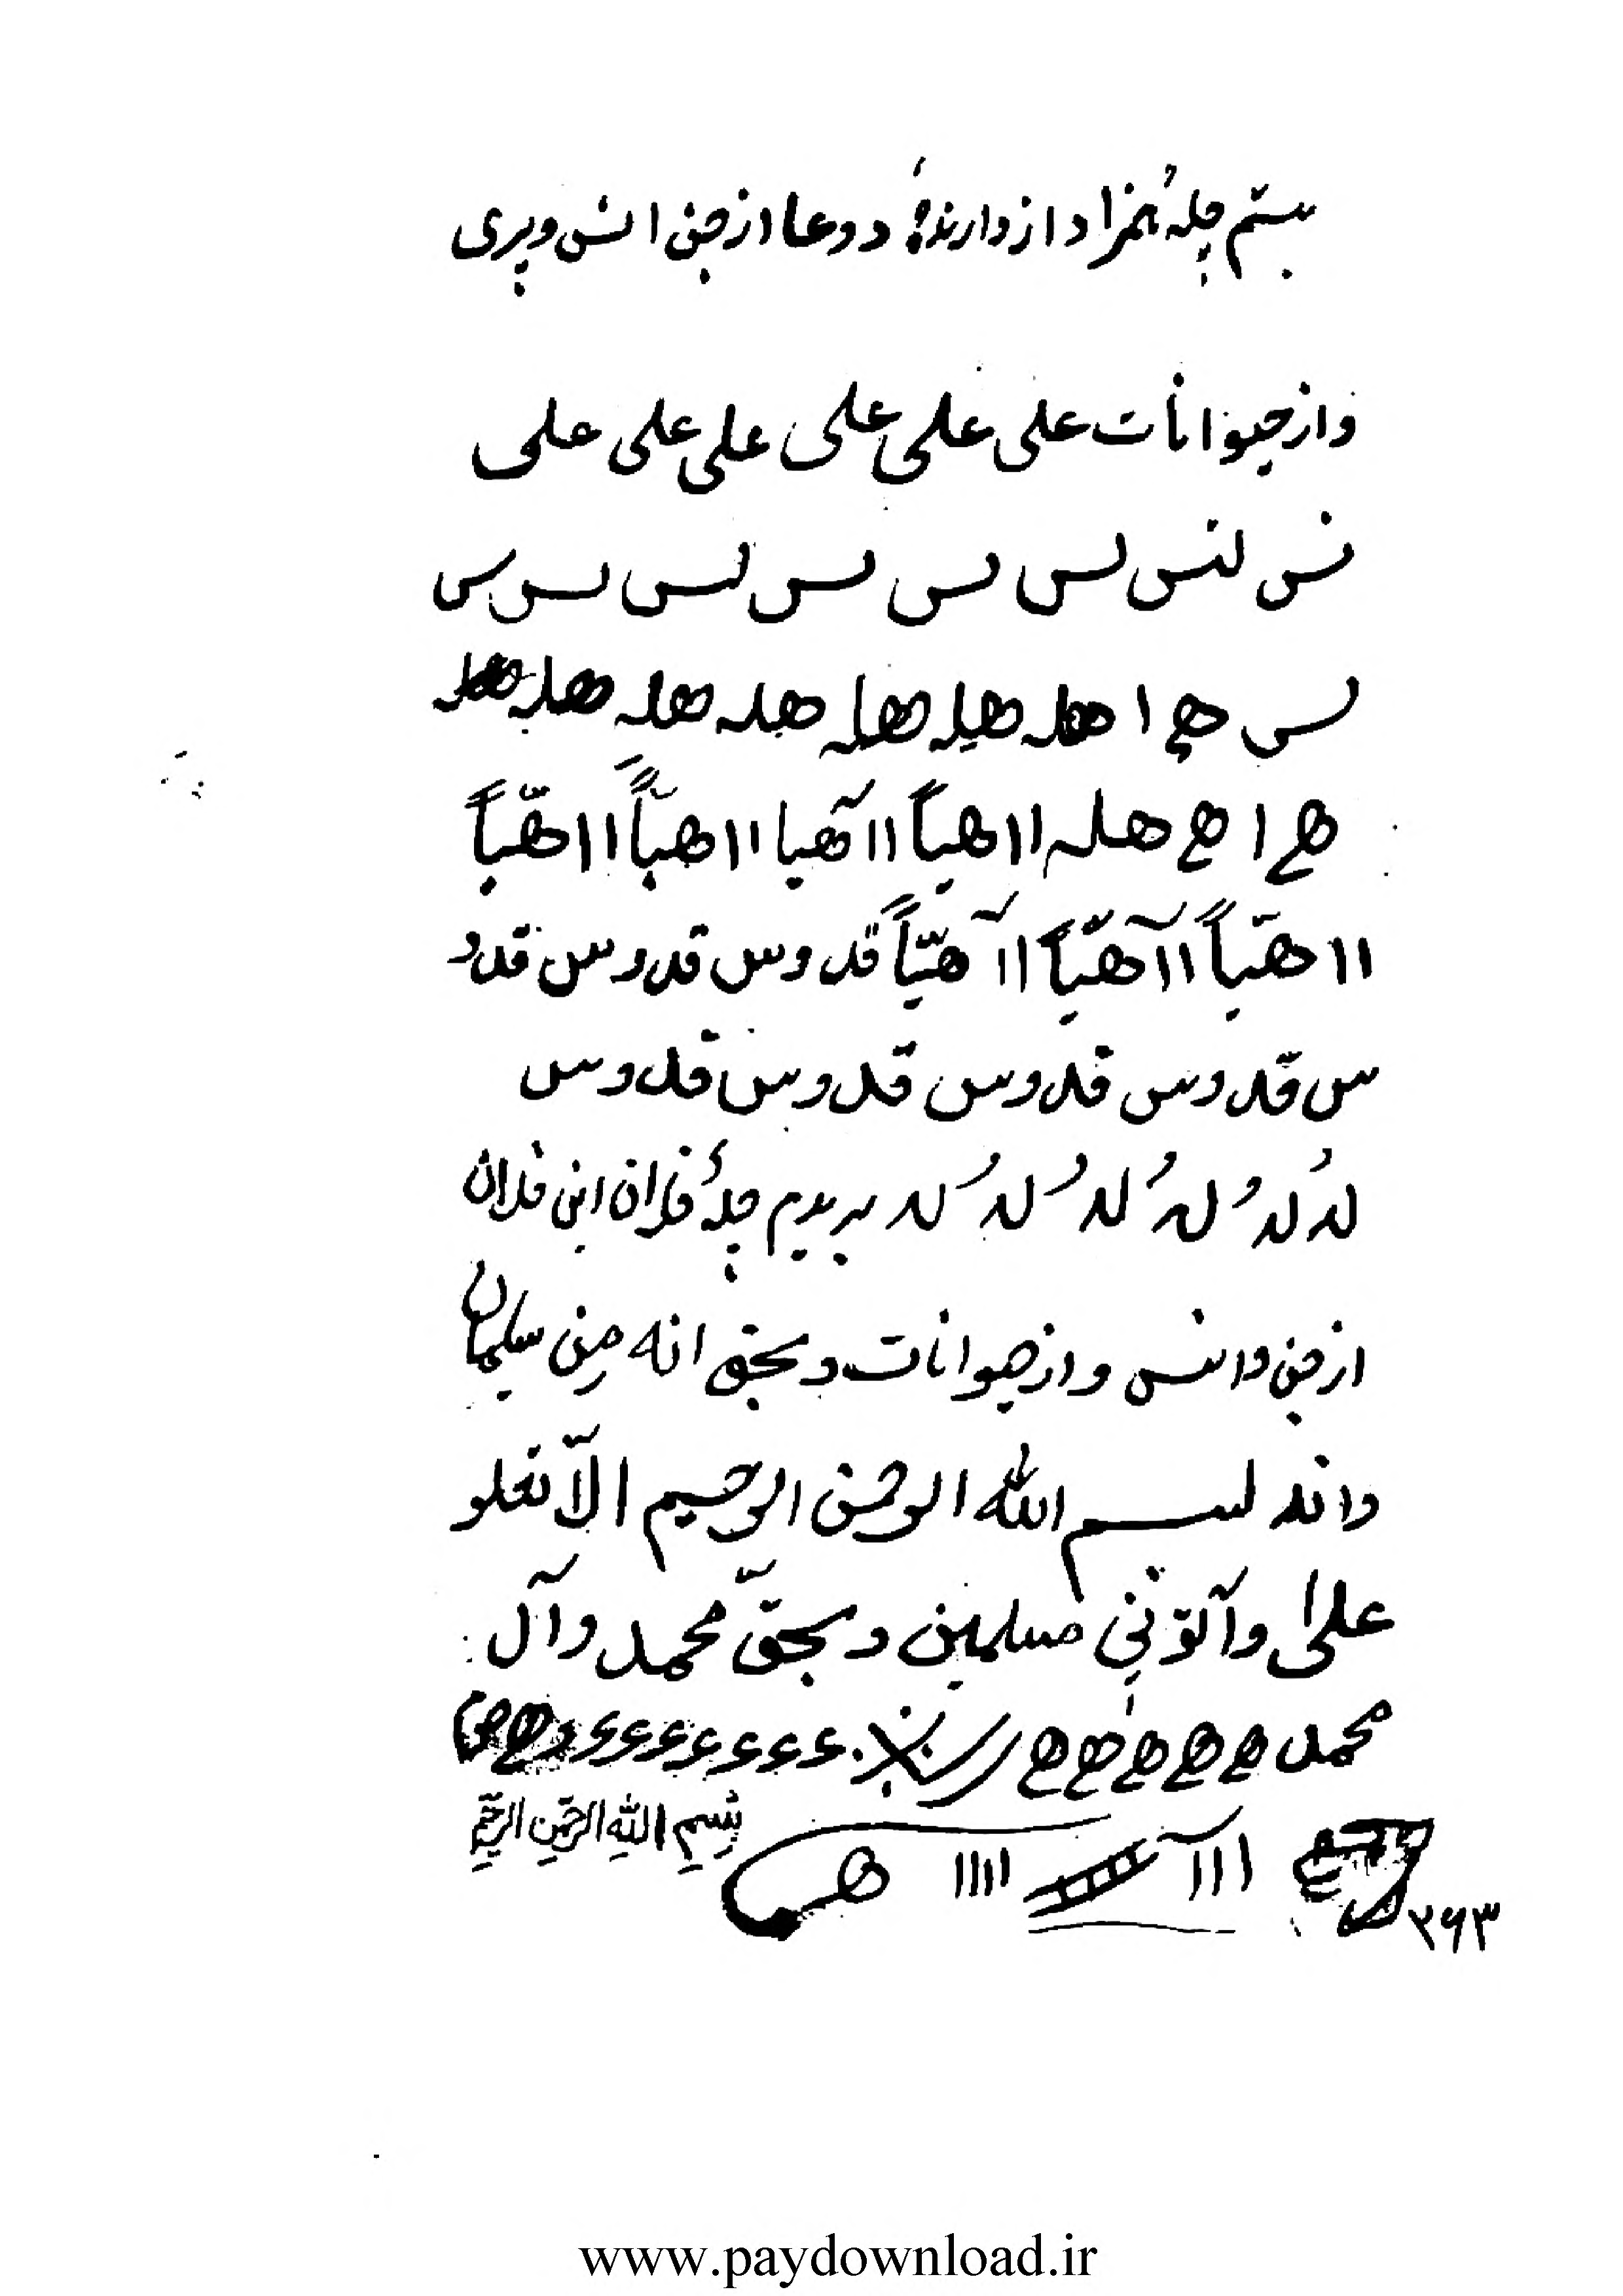 بستم چلهٔ همزاد از دارندهٔ دو دعا از جن انس و پری
واز حیوانات علی علی علی علی علی علی
نس لنس لس لس لس لس لس س
لس ھے ا هله هله هله هله هله هله
ھے ا ھے هله اا هباً اا آهیا اا هباً اا هبّاً
اا هبّاً اا آهبّاً اا آهبّاً قدوس قدوس قدو
س قدوس قدوس قدوس قدوس
لهُ لدُ لهُ لدُ لدُ لدُ لد بریدیم چلهٔ فلان ابن فلان
از جن وانس واز حیوانات و بحق انه من سلیمان
وانه بسم الله الرحمن الرحیم الّا تعلو
علیّ وآتونی مسلمین و بحقّ محمد وآل
محمد ھے ھے ھے ھے ھے ععععععععع
بِسْمِ اللَّهِ الرَّحْمَنِ الرَّحِيمِ
ااآ اااا هـ
۲۶۳
www.paydownload.ir